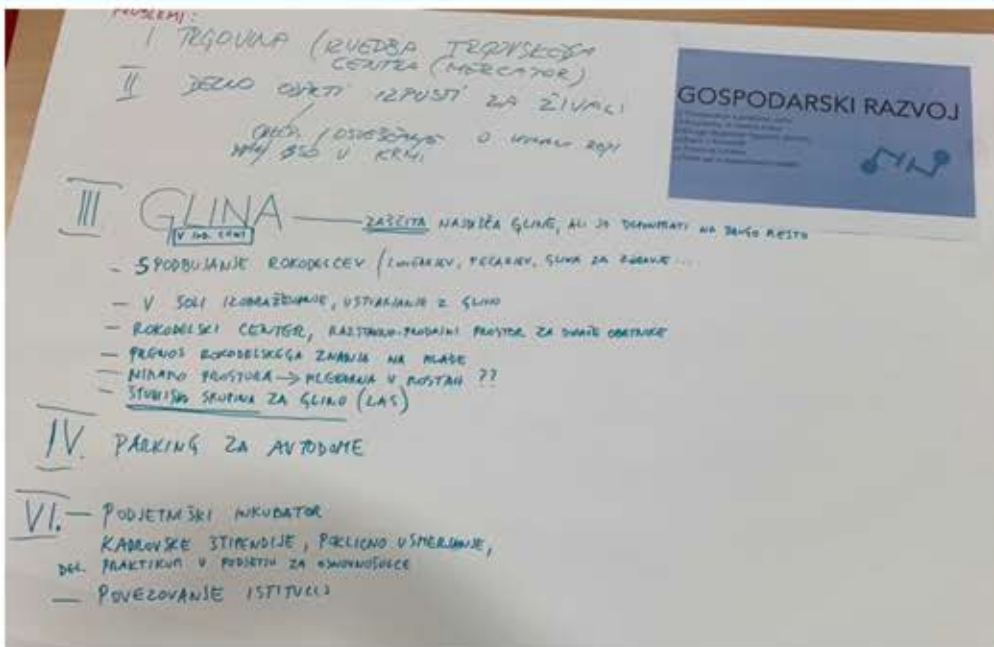 PROBLEMI:
I TRGOVINA (IZVEDBA TRGOVSKEGA
CENTRA (MERCATOR)
II DELNO ODPRTI IZPUSTI ZA ŽIVALI
OSVEŠČANJE O
GSO V KRMI
GOSPODARSKI RAZVOJ
III GLINA — ZAŠČITA NAJDIŠČA GLINE, ALI JO DEPONIRATI NA DRUGO MESTO
- SPODBUJANJE ROKODELCEV (LONČARJEV, PEČARJEV, GLINA ZA ZDRAVJE ...
- V ŠOLI IZOBRAŽEVANJE, USTVARJANJE Z GLINO
- ROKODELSKI CENTER, RAZSTAVNO-PRODAJNI PROSTOR ZA DOMAČE OBRTNIKE
- PRENOS ROKODELSKEGA ZNANJA NA MLADE
- NIMAMO PROSTORA → MLEKARNA V ROSTAH ??
- ŠTUDIJSKA SKUPINA ZA GLINO (LAS)
IV. PARKING ZA AVTODOME
VI. - PODJETNIŠKI INKUBATOR
KADROVSKE ŠTIPENDIJE, POKLICNO USMERJANJE,
DEL. PRAKTIKUM V PODJETJU ZA OSNOVNOŠOLCE
- POVEZOVANJE ISTITUCIJ